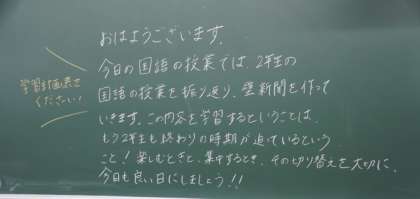 おはようございます。
今日の国語の授業では、2年生の
国語の授業を振り返り、壁新聞を作って
いきます。この内容を学習するということは、
もう2年生も終わりの時期が迫っているという
こと！楽しむときと、集中するとき、その切り替えを大切に、
今日も良い日にしましょう!!
学習計画表を
ください！